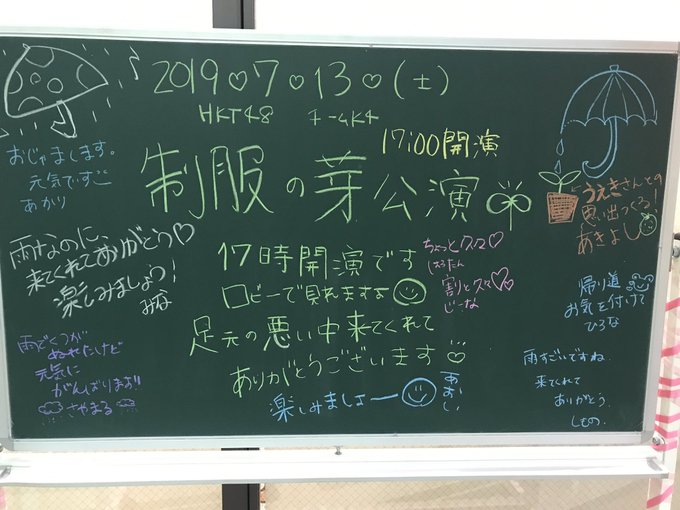 2019♡7♡13♡(土)
HKT48 チームK4
17:00開演
制服の芽公演
おじゃまします。
元気ですご
あかり
雨なのに、
来てくれてありがとう♡
楽しみましょう!
みな
雨でくつが
ぬれたけど
元気に
がんばります!!
さやまる
17時開演です
ロビーで見れますよ
足元の悪い中来てくれて
ありがとうございます
楽しみましょー
あおい
ちょっと久々♡
しぇろたん
割と久々♡♡
じーな
←うえきさんとの
思い出つくる!
あきよし
帰り道
お気を付けて
ひろな
雨すごいですね.
来てくれて
ありがとう.
しもの.